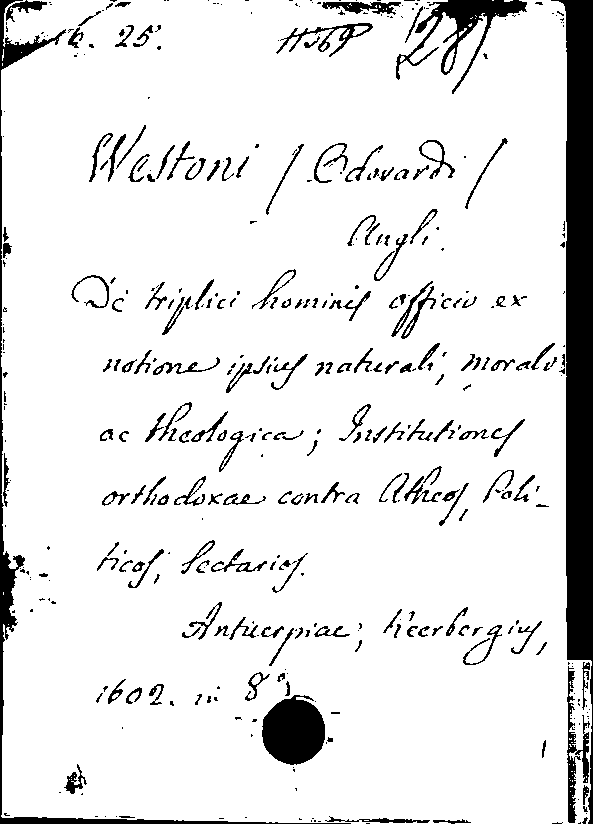 16. 25. 11569 (28).
Westoni / Edovardi /
Angli.
De triplici hominis officio ex
notione ipsius naturali, morali
ac theologica; Institutiones
orthodoxae contra Atheos, Poli-
ticos, Sectarios.
Antuerpiae; Keerbergius,
1602. in 8°.